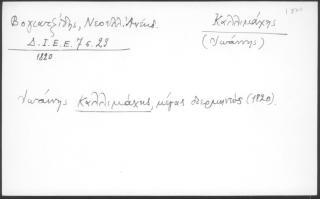 Βογιατζίδης, Νεοελλ. Ἀνέκδ.
Δ.Ι.Ε.Ε. 7 σ. 23
1820
Καλλιμάχης
(Ἰωάννης)
Ἰωάννης Καλλιμάχης, μέγας διερμηνεύς (1820).